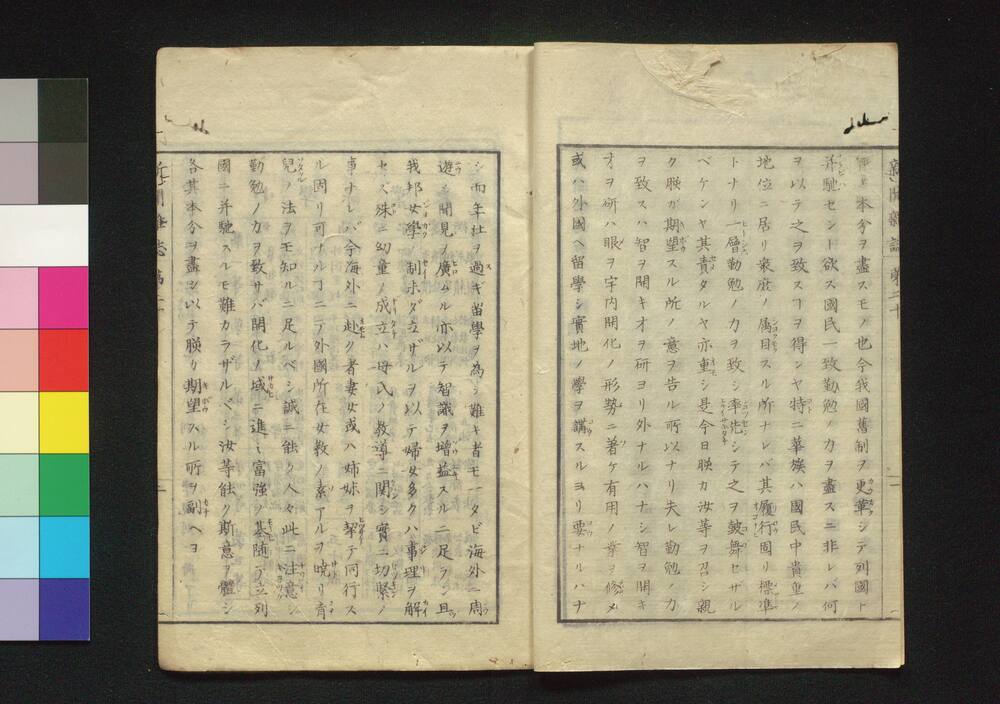 新聞雜誌 第二十
勵シ本分ヲ盡スモノ也今我國舊制ヲ更革シテ列國ト
并馳セント欲ス國民一致勤勉ノ力ヲ盡スニ非レバ何
ヲ以テ之ヲ致スヿヲ得ンヤ特ニ華族ハ國民中貴重ノ
地位ニ居リ衆庶ノ属目スル所ナレバ其履行固リ標準
トナリ一層勤勉ノ力ヲ致シ率先シテ之ヲ皷舞セザル
ベケンヤ其責タルヤ亦重シ是今日朕カ汝等ヲ召シ親
ク朕ガ期望スル所ノ意ヲ告ル所以ナリ夫レ勤勉ノ力
ヲ致スハ智ヲ開キオヲ研ヨリ外ナルハナシ智ヲ開キ
オヲ研ハ眼ヲ宇内開化ノ形勢ニ著ケ有用ノ業ヲ修メ
或ハ外國ヘ留學シ實地ノ學ヲ講スルヨリ要ナルハナ
シ而年壮ヲ過ギ留學ヲ為シ難キ者モ一タビ海外ニ周
遊シ聞見ヲ廣ムル亦以テ智識ヲ増益スルニ足ラン且
我邦女學ノ制未ダ立ザルヲ以テ婦女多クハ事理ヲ解
セズ殊ニ幼童ノ成立ハ母氏ノ教導ニ関シ實ニ切緊ノ
事ナレバ今海外ニ赴ク者妻女或ハ姉妹ヲ挈テ同行ス
ル固リ可ナルヿニテ外國所在女教ノ素アルヲ暁リ育
兒ノ法ヲモ知ルニ足ルベシ誠ニ能ク人々此ニ注意シ
勤勉ノ力ヲ致サバ開化ノ域ニ進ミ富強ノ基随テ立列
國ニ并馳スルモ難カラザルベシ汝等能ク斯意ヲ體シ
各其本分ヲ盡シ以テ朕カ期望スル所ヲ副ヘヨ